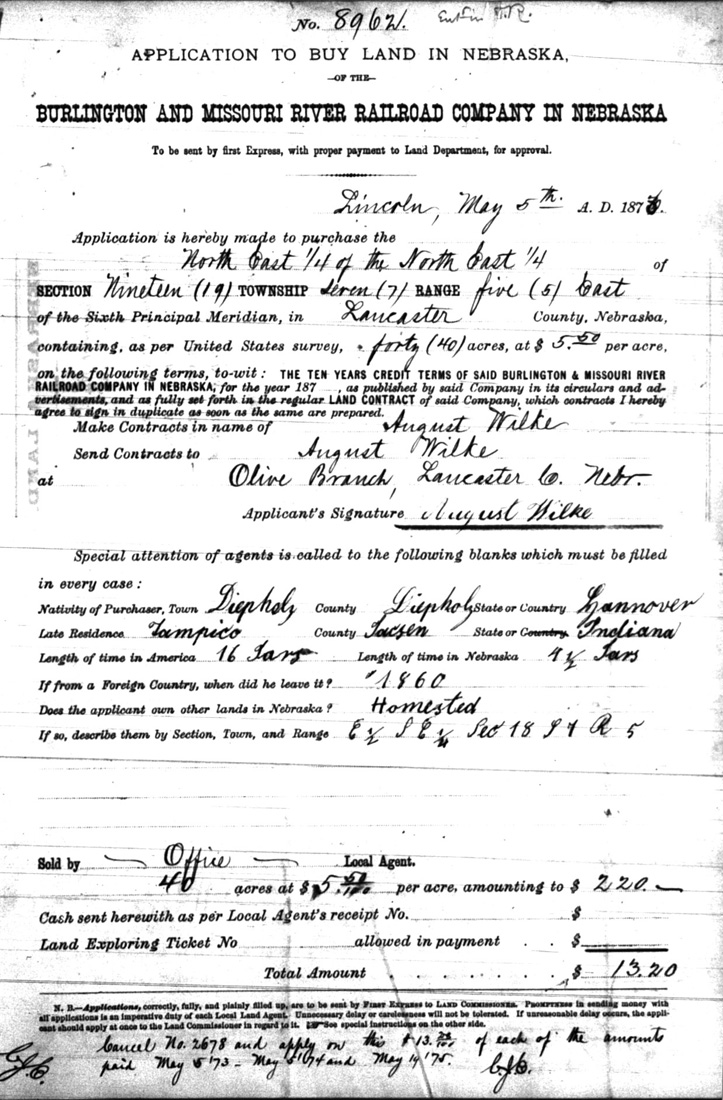 No. 8962.
APPLICATION TO BUY LAND IN NEBRASKA,
—OF THE—
BURLINGTON AND MISSOURI RIVER RAILROAD COMPANY IN NEBRASKA
To be sent by first Express, with proper payment to Land Department, for approval.
Lincoln, May 5th. A. D. 1876.
Application is hereby made to purchase the
North East 1/4 of the North East 1/4 of
SECTION Nineteen (19) TOWNSHIP Seven (7) RANGE five (5) East
of the Sixth Principal Meridian, in Lancaster County, Nebraska,
containing, as per United States survey, forty (40) acres, at $ 5.50 per acre,
on the following terms, to-wit: THE TEN YEARS CREDIT TERMS OF SAID BURLINGTON & MISSOURI RIVER
RAILROAD COMPANY IN NEBRASKA, for the year 187 , as published by said Company in its circulars and ad-
vertisements, and as fully set forth in the regular LAND CONTRACT of said Company, which contracts I hereby
agree to sign in duplicate as soon as the same are prepared.
Make Contracts in name of August Wilke
Send Contracts to August Wilke
at Olive Branch, Lancaster Co. Nebr.
Applicant's Signature August Wilke
Special attention of agents is called to the following blanks which must be filled
in every case:
Nativity of Purchaser, Town Diepholz County Diepholz State or Country Hannover
Late Residence Tampico County Jacsen State or Country Indiana
Length of time in America 16 Jars Length of time in Nebraska 9 1/2 Jars
If from a Foreign Country, when did he leave it? 1860
Does the applicant own other lands in Nebraska? Homested
If so, describe them by Section, Town, and Range E 1/2 S E 1/4 Sec 18 R 5
Sold by Office Local Agent.
40 acres at $ 5.50/100 per acre, amounting to $ 220.—
Cash sent herewith as per Local Agent's receipt No. $
Land Exploring Ticket No allowed in payment . . $
Total Amount . . . . . . . $ 13.20
N. B.—Applications, correctly, fully, and plainly filled up, are to be sent by FIRST EXPRESS to LAND COMMISSIONER. PROMPTNESS in sending money with
all applications is an imperative duty of each Local Land Agent. Unnecessary delay or carelessness will not be tolerated. If unreasonable delay occurs, the appli-
cant should apply at once to the Land Commissioner in regard to it. See special instructions on the other side.
Cancel No. 2678 and apply on this $13.20/100 of each of the amounts
paid May 5 '73 – May 5 '74 and May 14 '75.